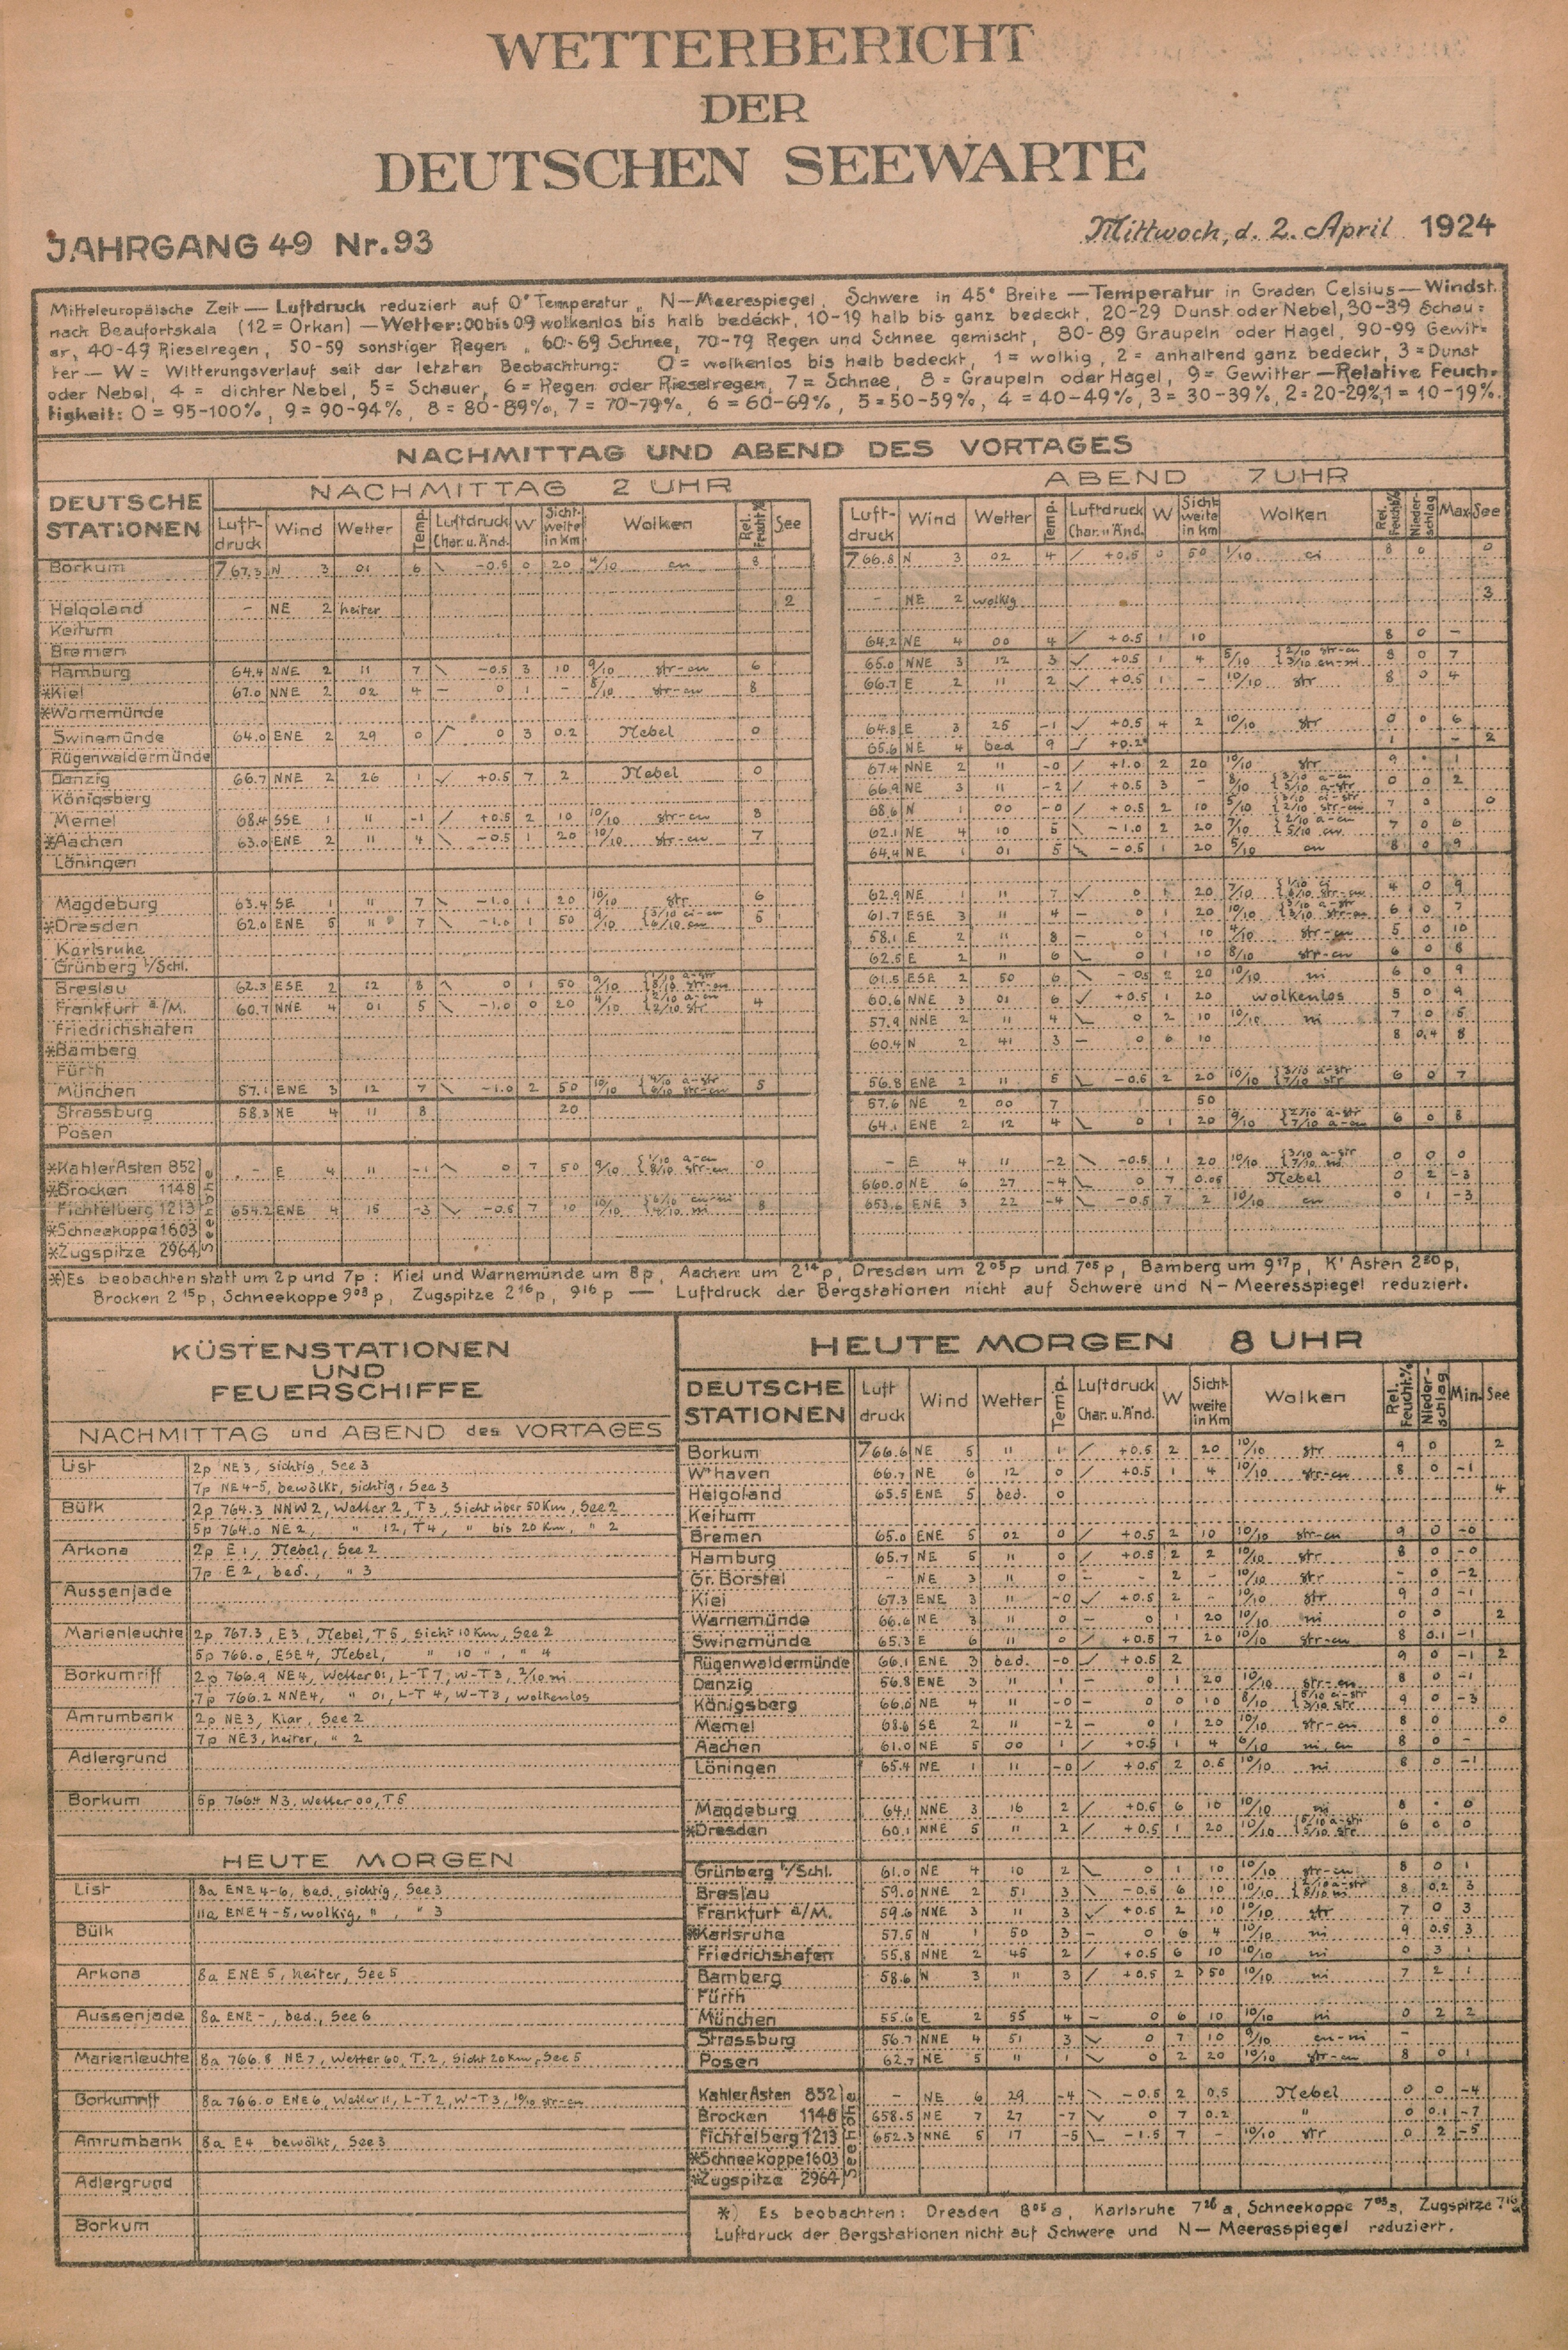 WETTERBERICHT
DER
DEUTSCHEN SEEWARTE
JAHRGANG 49 Nr. 93
Mittwoch, d. 2. April 1924
Mitteleuropäische Zeit — Luftdruck reduziert auf 0° Temperatur, N—Meerespiegel, Schwere in 45° Breite — Temperatur in Graden Celsius — Windst.
nach Beaufortskala (12 = Orkan) — Wetter: 00 bis 09 wolkenlos bis halb bedeckt, 10-19 halb bis ganz bedeckt, 20-29 Dunst oder Nebel, 30-39 Schau=
er, 40-49 Rieselregen, 50-59 sonstiger Regen, 60-69 Schnee, 70-79 Regen und Schnee gemischt, 80-89 Graupeln oder Hagel, 90-99 Gewit=
ter — W = Witterungsverlauf seit der letzten Beobachtung: 0 = wolkenlos bis halb bedeckt, 1 = wolkig, 2 = anhaltend ganz bedeckt, 3 = Dunst
oder Nebel, 4 = dichter Nebel, 5 = Schauer, 6 = Regen oder Rieselregen, 7 = Schnee, 8 = Graupeln oder Hagel, 9 = Gewitter — Relative Feuch-
tigkeit: 0 = 95-100%, 9 = 90-94%, 8 = 80-89%, 7 = 70-79%, 6 = 60-69%, 5 = 50-59%, 4 = 40-49%, 3 = 30-39%, 2 = 20-29%, 1 = 10-19%.
NACHMITTAG UND ABEND DES VORTAGES
DEUTSCHE STATIONEN
NACHMITTAG 2 UHR
Luft-druck Wind Wetter Temp. Luftdruck Char. u. Änd. W Sicht-weite in Km Wolken Rel. Feucht% See
ABEND 7 UHR
Luft-druck Wind Wetter Temp. Luftdruck Char. u. Änd. W Sicht-weite in Km Wolken Rel. Feucht% Nieder-schlag Max See
Borkum 767.3 N 3 01 6 -0.5 0 20 4/10 cu 8 766.8 N 3 02 4 +0.5 0 50 1/10 ci 8 0 0
Helgoland - NE 2 heiter 2 - NE 2 wolkig 3
Keitum
Bremen 64.2 NE 4 00 4 +0.5 1 10 8 0 -
Hamburg 64.4 NNE 2 11 7 -0.5 3 10 9/10 str-cu 6 65.0 NNE 3 12 3 +0.5 1 4 5/10 2/10 str-cu 3/10 cu-ni 8 0 7
*Kiel 67.0 NNE 2 02 4 - 0 1 - 8/10 str-cu 8 66.7 E 2 11 2 +0.5 1 - 10/10 str 8 0 4
*Warnemünde
Swinemünde 64.0 ENE 2 29 0 0 3 0.2 Nebel 0 64.8 E 3 25 -1 +0.5 4 2 10/10 str 0 0 6
Rügenwaldermünde 65.6 NE 4 bed 9 +0.2 1 - 2
Danzig 66.7 NNE 2 26 1 +0.5 7 2 Nebel 0 67.4 NNE 2 11 -0 +1.0 2 20 10/10 str 9 . 1
Königsberg 66.9 NE 3 11 -2 +0.5 3 - 8/10 3/10 a-cu 5/10 a-str 0 0 2
Memel 68.4 SSE 1 11 -1 +0.5 2 10 10/10 str-cu 8 68.6 N 1 00 -0 +0.5 2 10 5/10 3/10 ci-str 2/10 str-cu 7 0 0
*Aachen 63.0 ENE 2 11 4 -0.5 1 20 10/10 str-cu 7 62.1 NE 4 10 5 -1.0 2 20 7/10 2/10 a-cu 5/10 cu 7 0 6
Löningen 64.4 NE 1 01 5 -0.5 1 20 5/10 cu 8 0 9
Magdeburg 63.4 SE 1 11 7 -1.0 1 20 10/10 str 6 62.9 NE 1 11 7 0 1 20 7/10 1/10 ci 6/10 str-cu 4 0 9
*Dresden 62.0 ENE 5 11 7 -1.0 1 50 9/10 3/10 ci-cu 6/10 cu 5 61.7 ESE 3 11 4 - 0 1 20 10/10 a-str str-cu 6 0 7
Karlsruhe 58.1 E 2 11 8 - 0 1 10 4/10 str-cu 5 0 10
Grünberg i/Schl. 62.5 E 2 11 6 0 1 10 8/10 str-cu 6 0 8
Breslau 62.3 ESE 2 12 8 0 1 50 9/10 1/10 a-str 8/10 str-cu 61.5 ESE 2 50 6 -0.5 2 20 10/10 ni 6 0 9
Frankfurt a/M. 60.7 NNE 4 01 5 -1.0 0 20 4/10 2/10 a-cu 2/10 str 4 60.6 NNE 3 01 6 +0.5 1 20 wolkenlos 5 0 9
Friedrichshafen 57.9 NNE 2 11 4 0 2 10 10/10 ni 7 0 5
*Bamberg 60.4 N 2 41 3 - 0 6 10 8 0,4 8
Fürth
München 57.1 ENE 3 12 7 -1.0 2 50 10/10 4/10 a-str 6/10 str-cu 5 56.8 ENE 2 11 5 -0.5 2 20 10/10 3/10 a-str 7/10 str 6 0 7
Strassburg 58.3 NE 4 11 8 20 57.6 NE 2 00 7 1 50
Posen 64.1 ENE 2 12 4 0 1 20 9/10 2/10 a-str 7/10 a-cu 6 0 8
Seehöhe
*Kahler Asten 852 - E 4 11 -1 0 7 50 9/10 1/10 a-cu 8/10 str-cu 0 - E 4 11 -2 -0.5 1 20 10/10 3/10 a-str 7/10 ni 0 0 0
*Brocken 1148 660.0 NE 6 27 -4 0 7 0.05 Nebel 0 2 -3
Fichtelberg 1213 654.2 ENE 4 15 -3 -0.5 7 10 10/10 6/10 cu-ni 4/10 ni 8 653.6 ENE 3 22 -4 -0.5 7 2 10/10 cu 0 1 -3
*Schneekoppe 1603
*Zugspitze 2964
*) Es beobachten statt um 2p und 7p: Kiel und Warnemünde um 8p, Aachen um 2 14 p, Dresden um 2 05 p und 7 05 p, Bamberg um 9 17 p, K' Asten 2 20 p,
Brocken 2 15 p, Schneekoppe 9 03 p, Zugspitze 2 16 p, 9 16 p — Luftdruck der Bergstationen nicht auf Schwere und N—Meeresspiegel reduziert.
KÜSTENSTATIONEN
UND
FEUERSCHIFFE
NACHMITTAG und ABEND des VORTAGES
List 2p NE 3, sichtig, See 3
7p NE 4-5, bewölkt, sichtig, See 3
Bülk 2p 764.3 NNW 2, Wetter 2, T 3, Sicht über 50 Km, See 2
5p 764.0 NE 2, " 12, T 4, " bis 20 Km, " 2
Arkona 2p E 1, Nebel, See 2
7p E 2, bed., " 3
Aussenjade
Marienleuchte 2p 767.3, E 3, Nebel, T 5, Sicht 10 Km, See 2
5p 766.0, ESE 4, Nebel, " 10 ", " 4
Borkumriff 2p 766.9 NE 4, Wetter 01, L-T 7, W-T 3, 2/10 ni
7p 766.2 NNE 4, " 01, L-T 4, W-T 3, wolkenlos
Amrumbank 2p NE 3, Klar, See 2
7p NE 3, heiter, " 2
Adlergrund
Borkum 5p 766.4 N 3, Wetter 00, T 5
HEUTE MORGEN
List 8a ENE 4-6, bed., sichtig, See 3
11a ENE 4-5, wolkig, " , " 3
Bülk
Arkona 8a ENE 5, heiter, See 5
Aussenjade 8a ENE -, bed., See 6
Marienleuchte 8a 766.8 NE 7, Wetter 60, T. 2, Sicht 20 Km, See 5
Borkumriff 8a 766.0 ENE 6, Wetter 11, L-T 2, W-T 3, 10/10 str-cu
Amrumbank 8a E 4 bewölkt, See 3
Adlergrund
Borkum
HEUTE MORGEN 8 UHR
DEUTSCHE STATIONEN Luft druck Wind Wetter Temp. Luftdruck Char. u. Änd. W Sicht-weite in Km Wolken Rel. Feucht.% Nieder-schlag Min. See
Borkum 766.6 NE 5 11 1 +0.5 2 20 10/10 str 9 0 2
W'haven 66.7 NE 6 12 0 +0.5 1 4 10/10 str-cu 8 0 -1
Helgoland 65.5 ENE 5 bed. 0 4
Keitum
Bremen 65.0 ENE 5 02 0 +0.5 2 10 10/10 str-cu 9 0 -0
Hamburg 65.7 NE 5 11 0 +0.5 2 2 10/10 str 8 0 -0
Gr. Borstel - NE 3 11 0 - - 2 - 10/10 str - 0 -2
Kiel 67.3 ENE 3 11 -0 +0.5 2 - 10/10 str 9 0 -1
Warnemünde 66.6 NE 3 11 0 - 0 1 20 10/10 ni 0 0 2
Swinemünde 65.3 E 6 11 0 +0.5 7 20 10/10 str-cu 8 0.1 -1
Rügenwaldermünde 66.1 ENE 3 bed. -0 +0.5 2 9 0 -1 2
Danzig 56.8 ENE 3 11 1 - 0 1 20 10/10 str-cu 8 0 -1
Königsberg 66.0 NE 4 11 -0 - 0 0 10 8/10 5/10 a-str 3/10 str 9 0 -3
Memel 68.6 SE 2 11 -2 - 0 1 20 10/10 str-cu 8 0 0
Aachen 61.0 NE 5 00 1 +0.5 1 4 6/10 ni, cu 8 0 -
Löningen 65.4 NE 1 11 -0 +0.5 2 0.5 10/10 ni 8 0 -1
Magdeburg 64.1 NNE 3 16 2 +0.5 6 10 10/10 ni 8 . 0
*Dresden 60.1 NNE 5 11 2 +0.5 1 20 10/10 5/10 a-str 5/10 str 6 0 0
Grünberg i/Schl. 61.0 NE 4 10 2 0 1 10 10/10 str-cu 8 0 1
Breslau 59.0 NNE 2 51 3 -0.5 6 10 10/10 2/10 a-str 8/10 ni 8 0.2 3
Frankfurt a/M. 59.6 NNE 3 11 3 +0.5 2 10 10/10 str 7 0 3
*Karlsruhe 57.5 N 1 50 3 - 0 6 4 10/10 ni 9 0.5 3
Friedrichshafen 55.8 NNE 2 45 2 +0.5 6 10 10/10 ni 0 3 1
Bamberg 58.6 N 3 11 3 +0.5 2 >50 10/10 ni 7 2 1
Fürth
München 55.6 E 2 55 4 - 0 6 10 10/10 ni 0 2 2
Strassburg 56.7 NNE 4 51 3 0 7 10 9/10 cu-ni -
Posen 62.7 NE 5 11 1 0 2 20 10/10 str-cu 8 0 1
Seehöhe
Kahler Asten 852 - NE 6 29 -4 -0.5 2 0.5 Nebel 0 0 -4
Brocken 1148 658.5 NE 7 27 -7 0 7 0.2 " 0 0.1 -7
Fichtelberg 1213 652.3 NNE 5 17 -5 -1.5 7 - 10/10 str 0 2 -5
*Schneekoppe 1603
*Zugspitze 2964
*) Es beobachten: Dresden 8 05 a, Karlsruhe 7 26 a, Schneekoppe 7 03 a, Zugspitze 7 16 a
Luftdruck der Bergstationen nicht auf Schwere und N—Meeresspiegel reduziert.